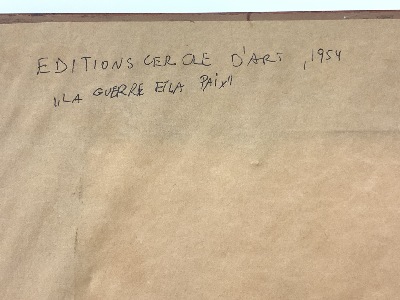 EDITIONS CERCLE D'ART, 1954
„LA GUERRE ET LA PAIX"